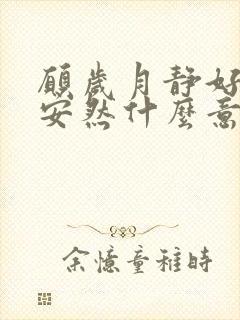 願歲月靜好
安然什麼意
余憶童稚時